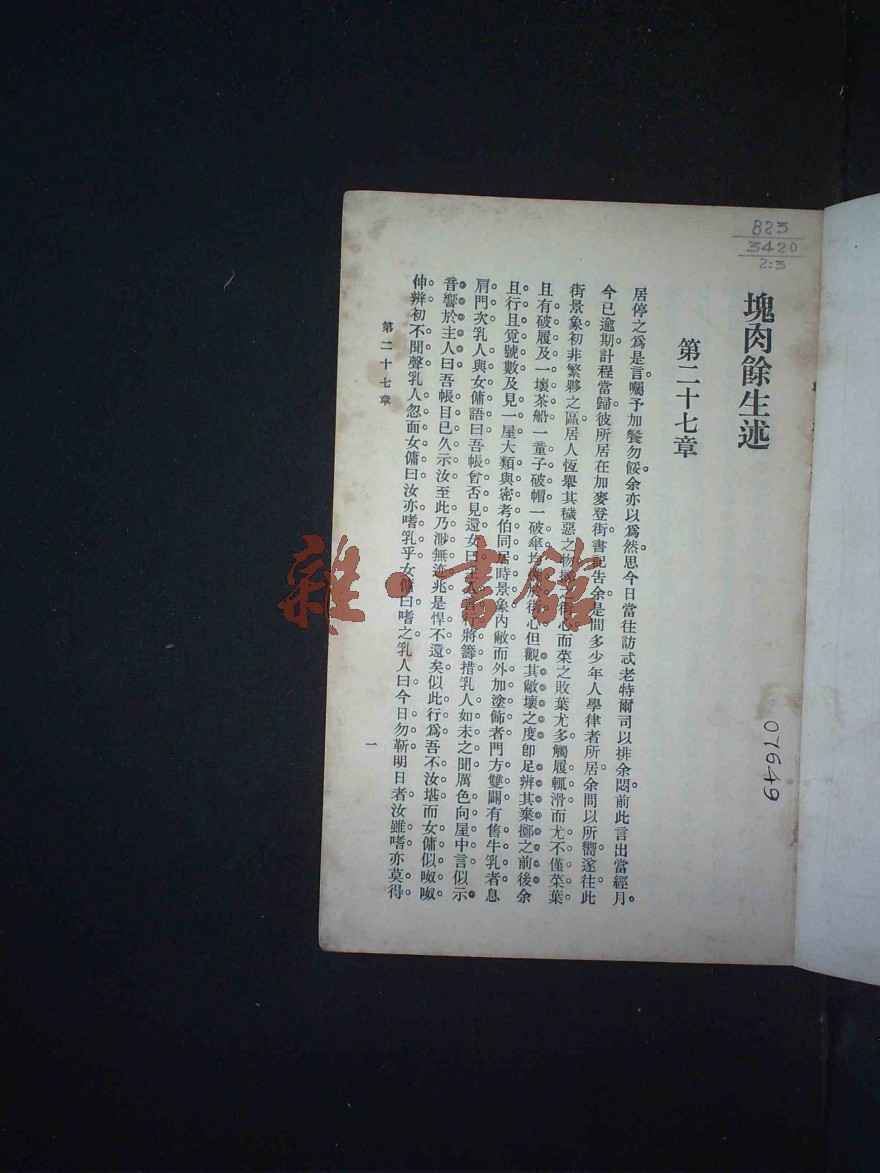 823
3420
2:3
塊肉餘生述
第二十七章
居停之爲是言囑予加餐勿餒余亦以爲然思今日當往訪忒老特爾司以排余悶前此言出當經月
今已逾期計程當歸彼所居在加麥登街書記告余是間多少年人學律者所居余問以所嚮遂往此
街景象初非繁夥之區居人恆舉其穢惡之物擲之街心而菜之敗葉尤多觸履輒滑而尤不僅菜葉
且有破履及一壞茶船一童子破帽一破傘均於街心但觀其敝壞之度卽足辨其棄擲之前後余
且行且覓號數及見一屋大類與密考伯同居時景象內敝而外加塗飾者門方雙闢有售牛乳者息
肩門次乳人與女傭語曰吾帳曾否見還女曰主人言行將籌措乳人如未之聞厲色向屋中言似示
音響於主人曰吾帳目已久示汝至此乃渺無迹兆是悍不還矣似此行爲吾不汝堪而女傭似呶呶
伸辨初不聞聲乳人忽面女傭曰汝亦嗜乳乎女傭曰嗜之乳人曰今日勿靳明日者汝雖嗜亦莫得
第二十七章
一
07649
雜·書館